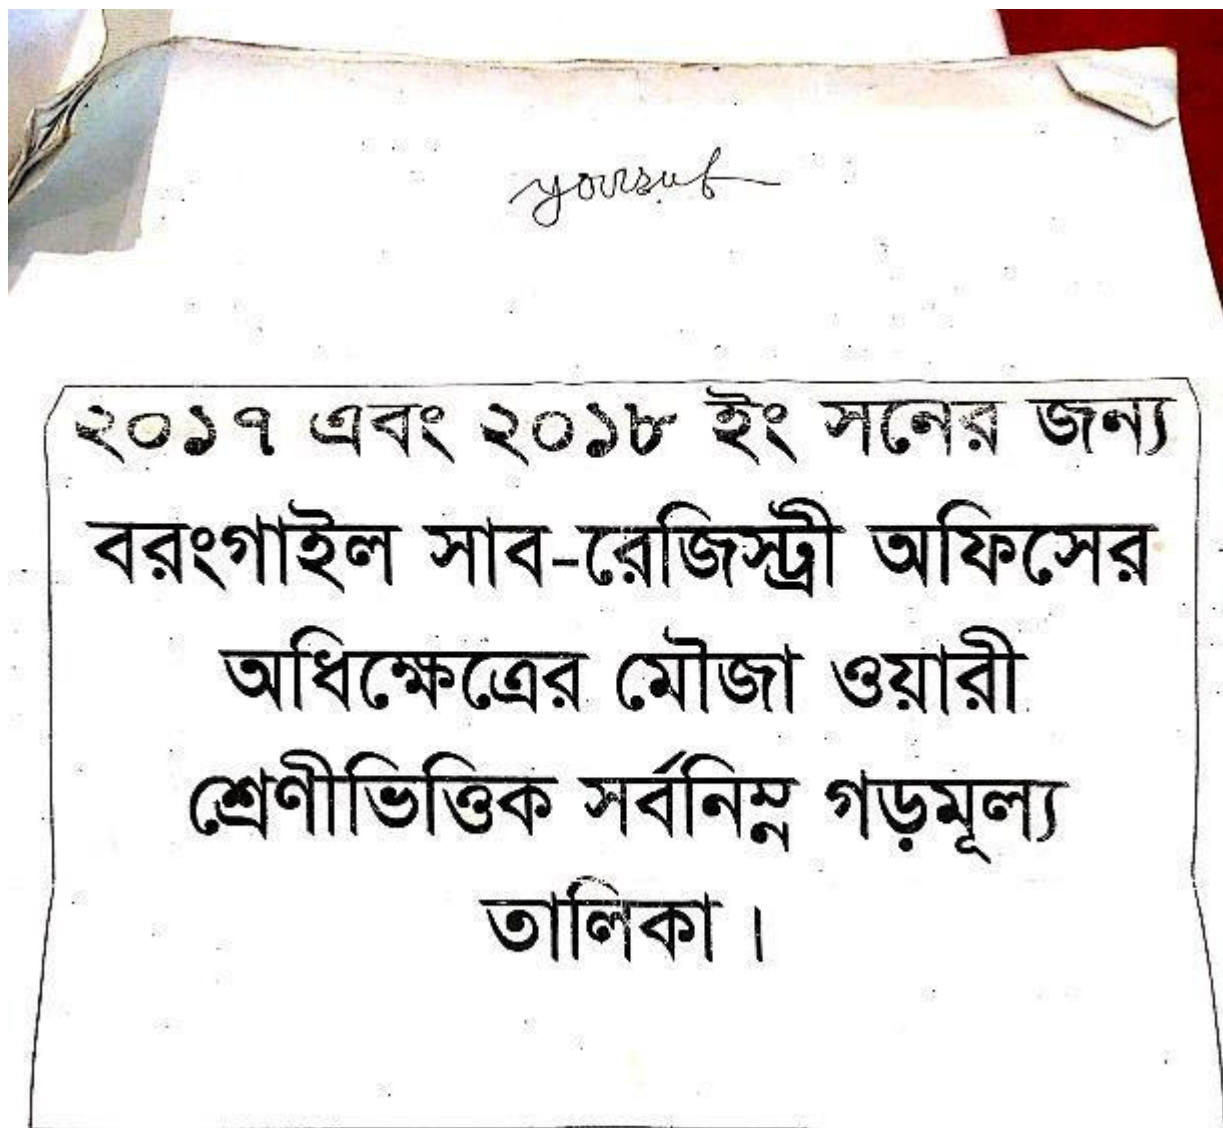 yoursuf
২০১৭ এবং ২০১৮ ইং সনের জন্য
বরংগাইল সাব-রেজিস্ট্রী অফিসের
অধিক্ষেত্রের মৌজা ওয়ারী
শ্রেণীভিত্তিক সর্বনিম্ন গড়মূল্য
তালিকা।